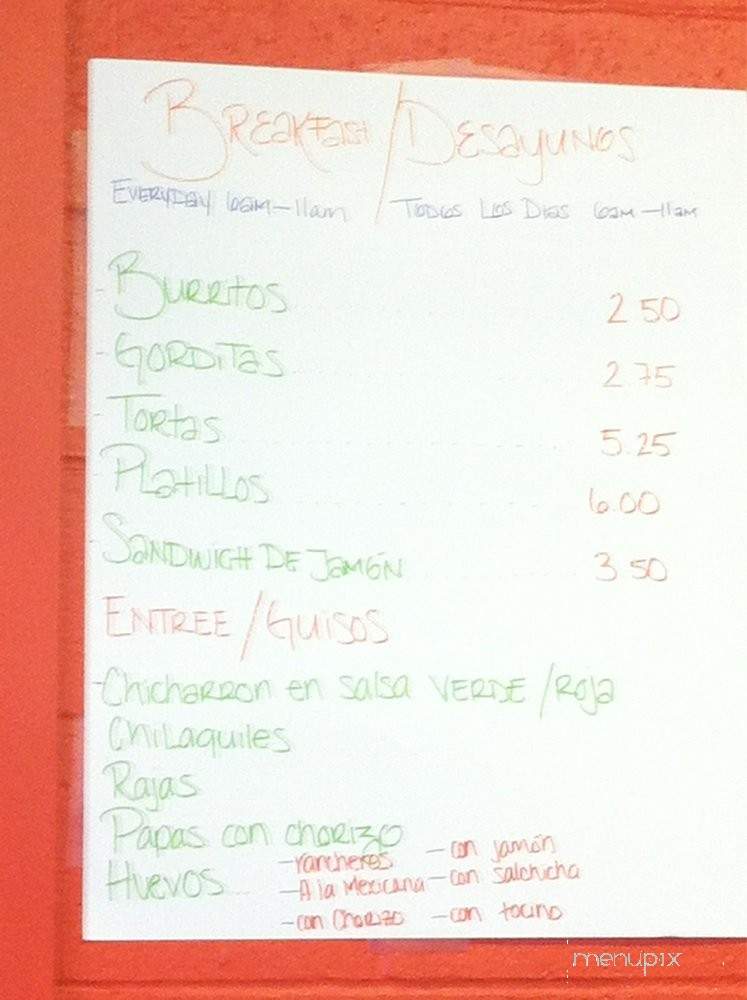 Breakfast/Desayunos
Everyday 6am-11am / Todos Los Dias 6am-11am
- Burritos 2.50
- Gorditas 2.75
- Tortas 5.25
- Platillos 6.00
- Sandwich De Jamón 3.50
Entree/Guisos
- Chicharron en salsa verde/Roja
Chilaquiles
Rajas
Papas con chorizo
Huevos
- rancheros - con jamón
- A la Mexicana - con salchicha
- con Chorizo - con tocino
menupix